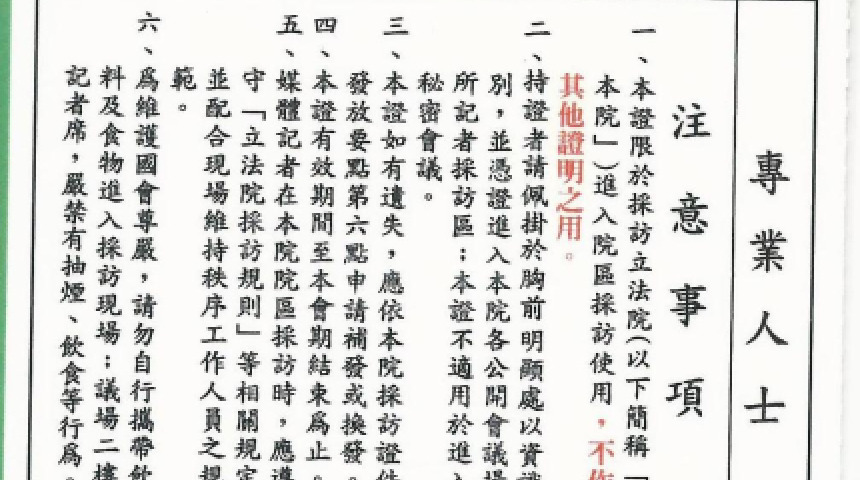 專業人士
注意事項
一、本證限於採訪立法院(以下簡稱「
本院」)進入院區採訪使用,不作
其他證明之用。
二、持證者請佩掛於胸前明顯處以資識
別,並憑證進入本院各公開會議場
所記者採訪區;本證不適用於進入
秘密會議。
三、本證如有遺失,應依本院採訪證件
發放要點第六點申請補發或換發。
四、本證有效期間至本會期結束為止。
五、媒體記者在本院院區採訪時,應遵
守「立法院採訪規則」等相關規定
並配合現場維持秩序工作人員之規
範。
六、為維護國會尊嚴,請勿自行攜帶飲
料及食物進入採訪現場;議場二樓
記者席,嚴禁有抽煙、飲食等行為。